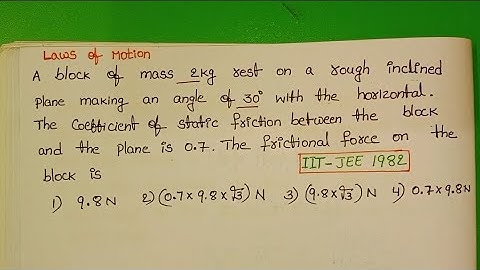 Laws of Motion
A block of mass 2kg rest on a rough inclined
plane making an angle of 30° with the horizontal.
The Coefficient of static friction between the block
and the plane is 0.7. The frictional force on the
block is
IIT-JEE 1982
1) 9.8 N 2) (0.7 × 9.8 × √3) N 3) (9.8 × √3) N 4) 0.7 × 9.8 N